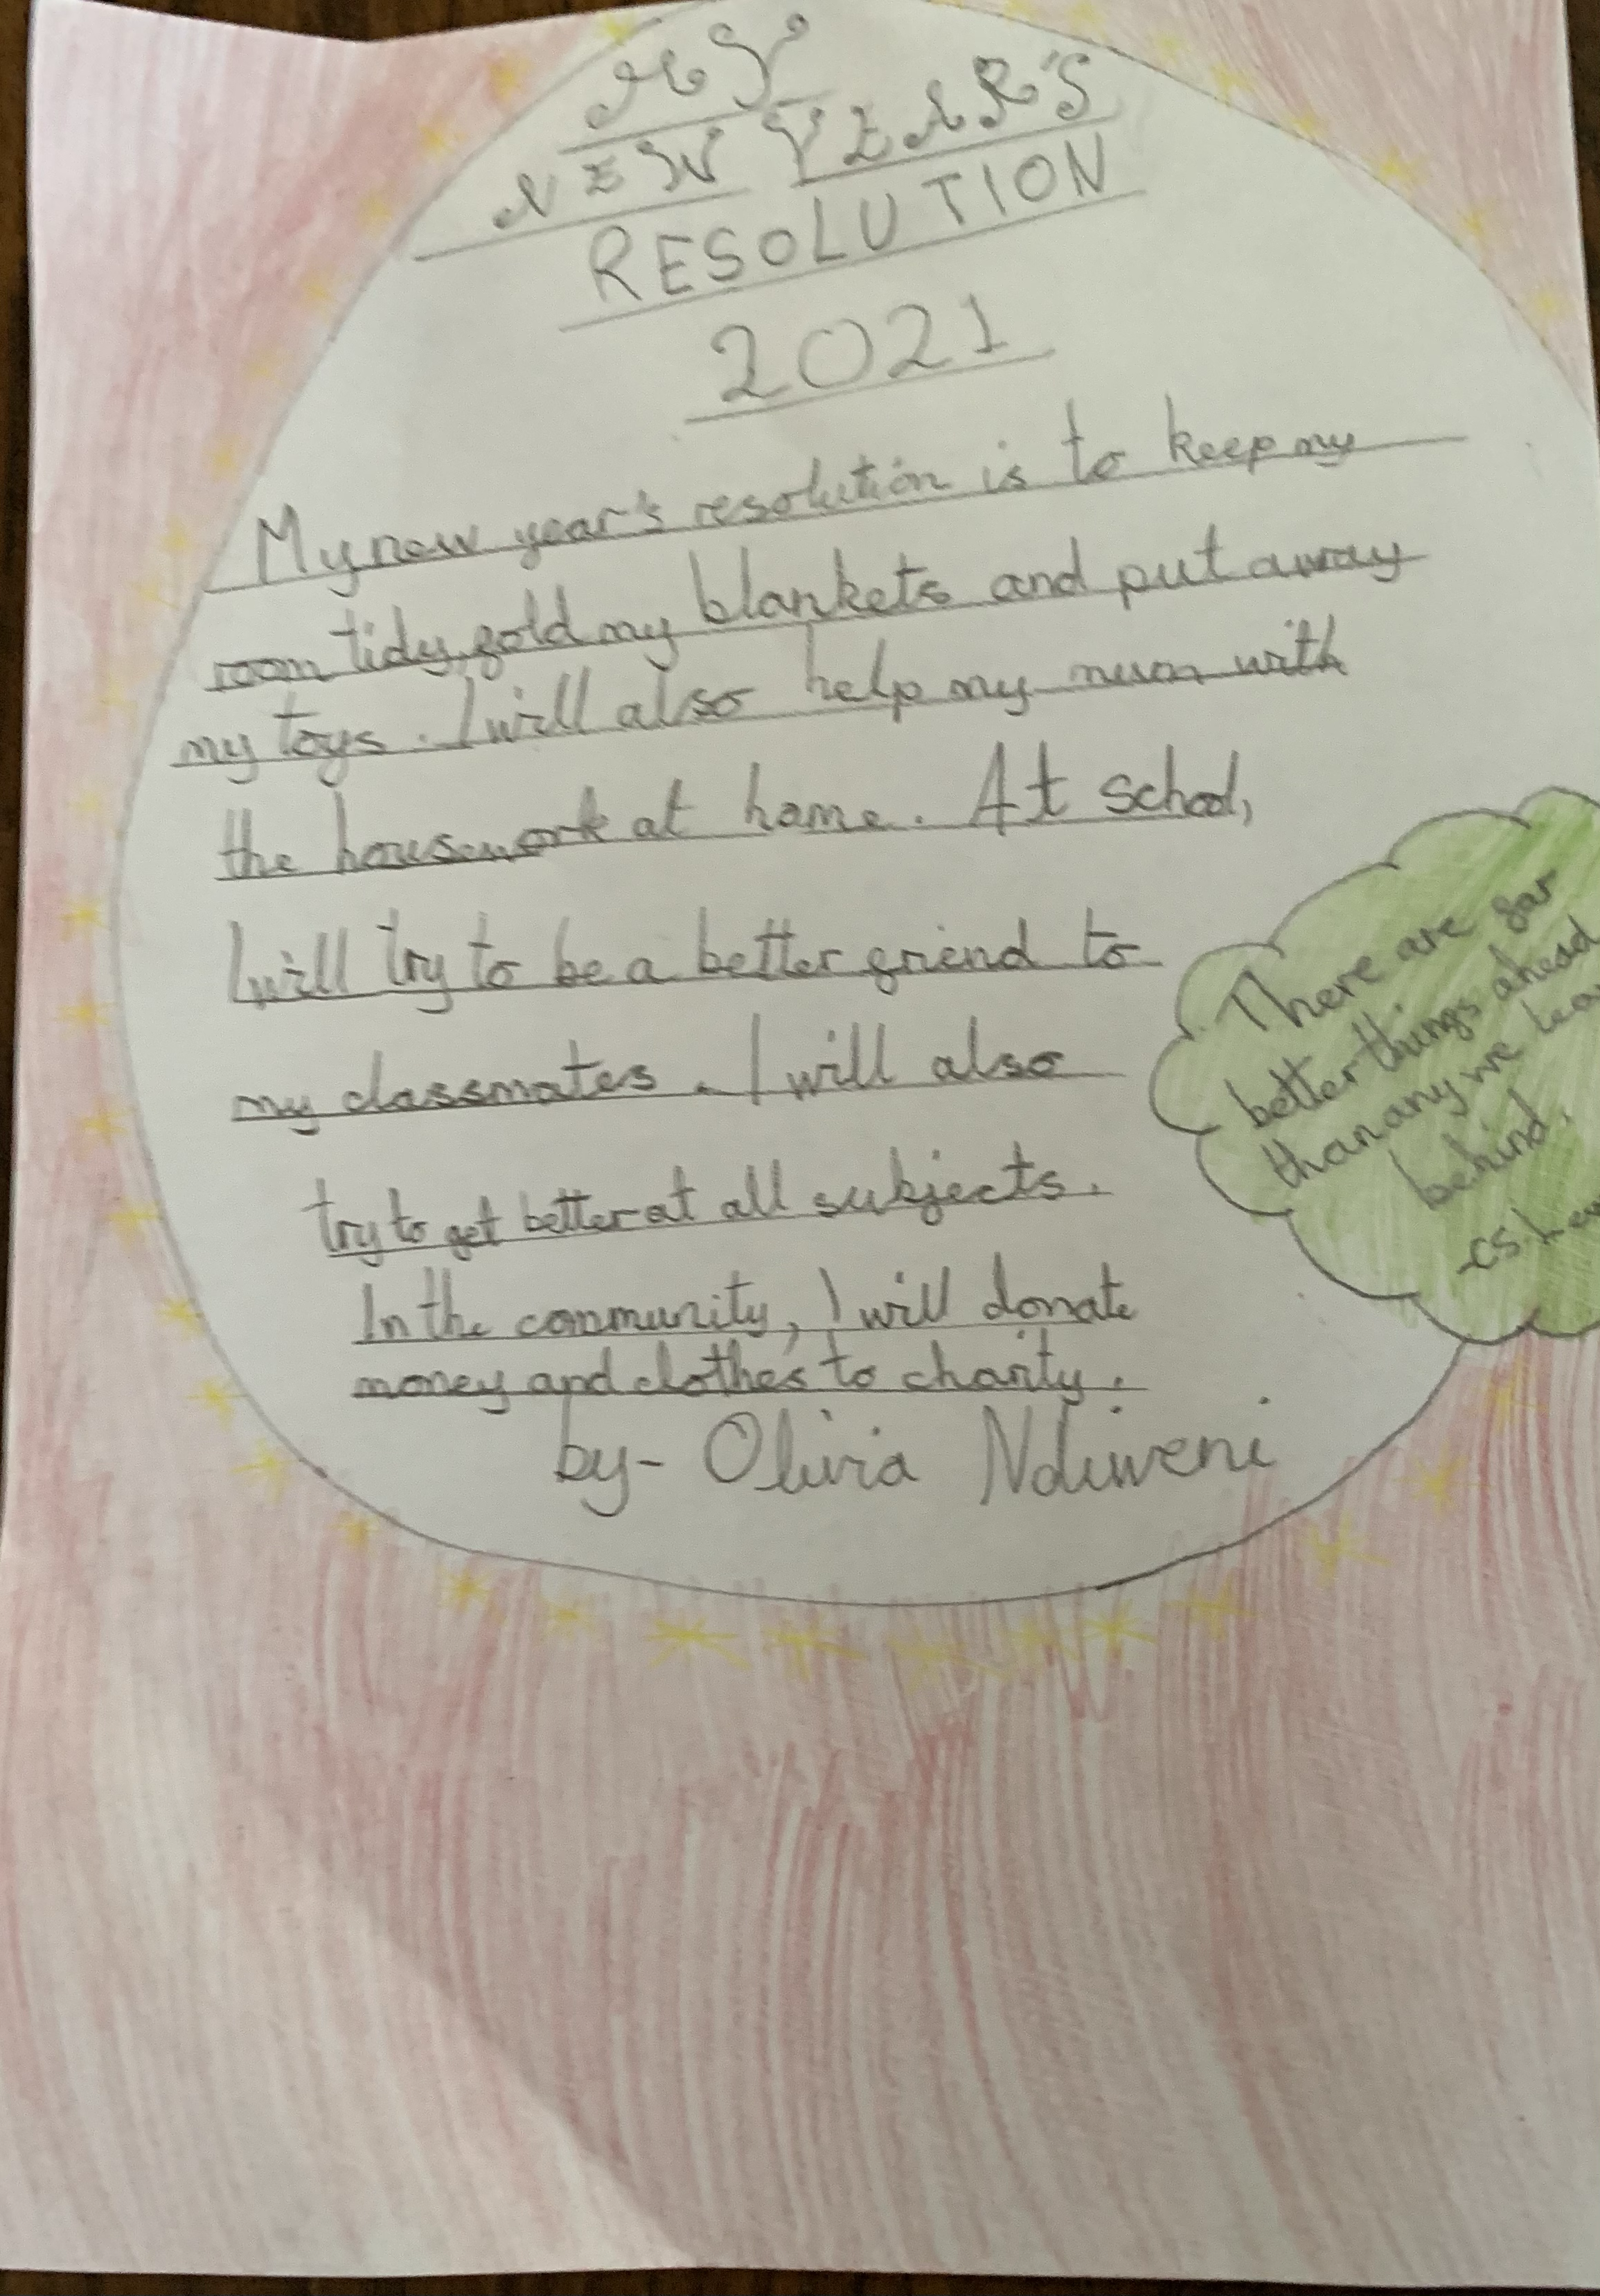 MY
NEW YEAR'S
RESOLUTION
2021
My new year's resolution is to keep my
room tidy, fold my blankets and put away
my toys. I will also help my mum with
the housework at home. At school,
I will try to be a better friend to
my classmates. I will also
try to get better at all subjects.
In the community, I will donate
money and clothes to charity.
by- Olivia Ndiweni
There are far
better things ahead
than any we
behind.
-CS.